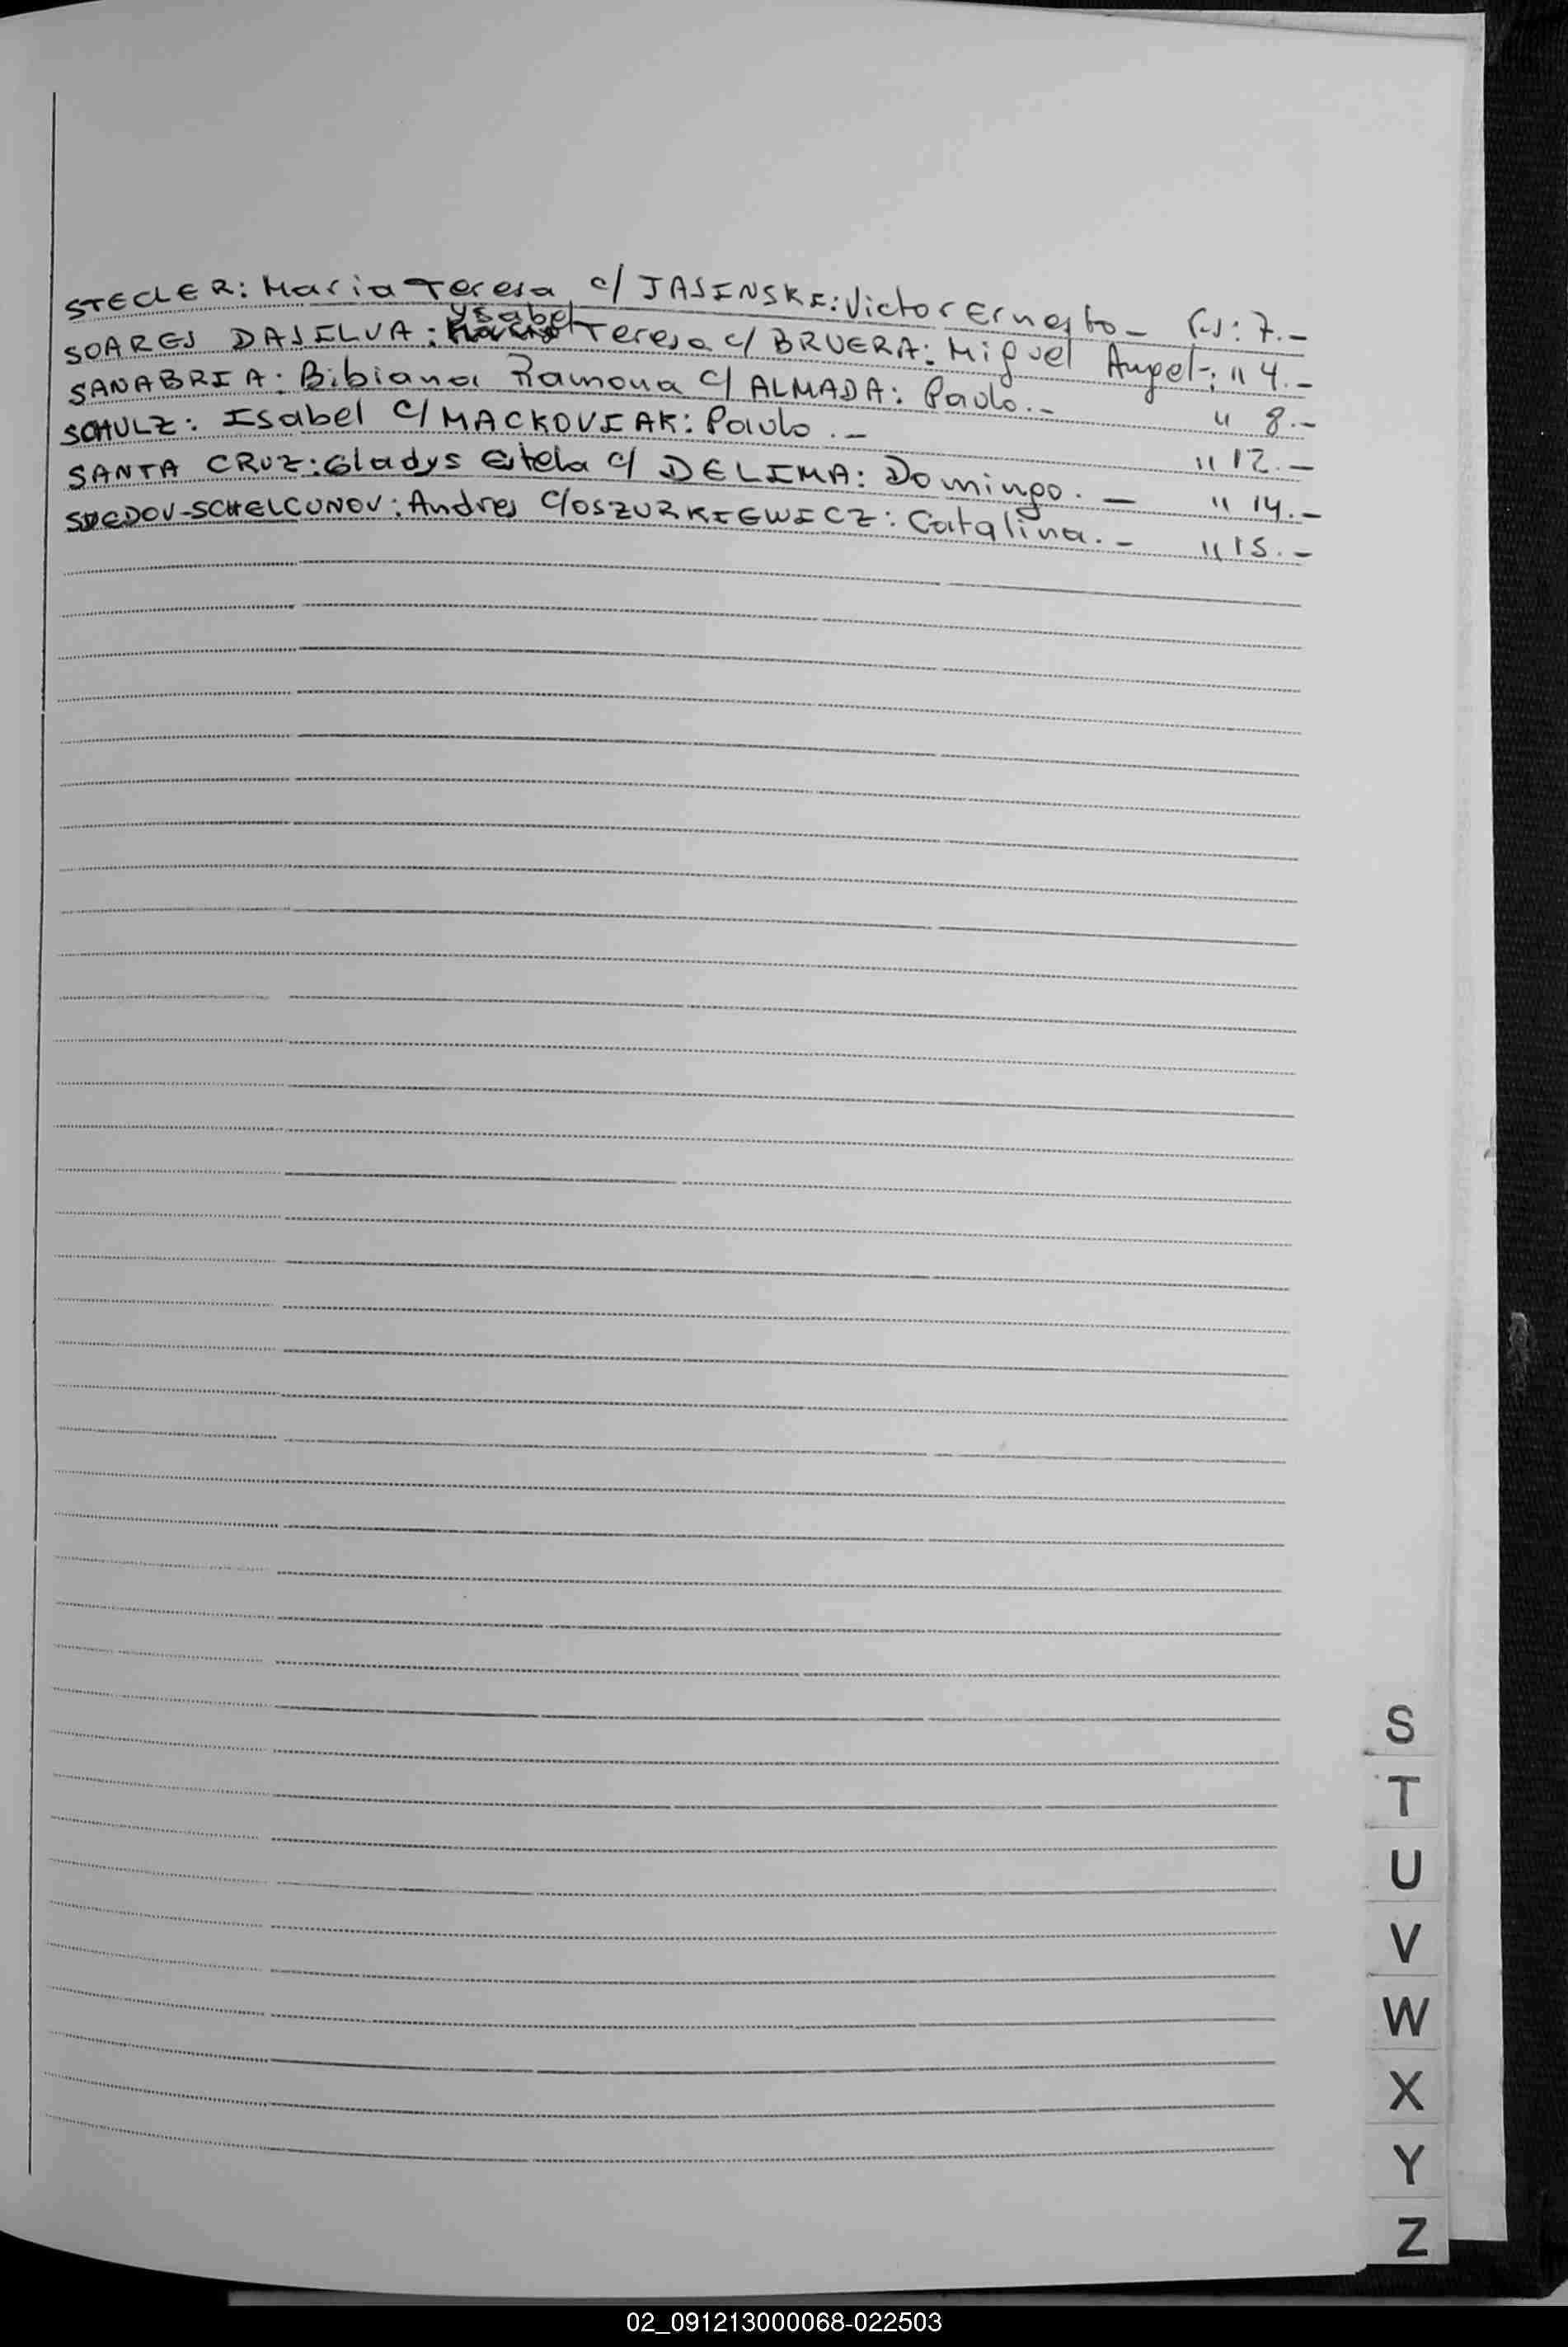 STECLER: Maria Teresa c/ JASINSKI: Victor Ernesto - Fs: 7.-
SOARES DASILVA: Ysabel Teresa c/ BRUERA: Miguel Angel-; " 4.-
SANABRIA: Bibiana Ramona c/ ALMADA: Paulo.- " 8.-
SCHULZ: Isabel c/ MACKOVIAK: Paulo.- " 12.-
SANTA CRUZ: Gladys Estela c/ DELIMA: Domingo.- " 14.-
SUEDOV-SCHELCUNOV: Andres c/ OSZURKIEWICZ: Catalina.- " 15.-
S
T
U
V
W
X
Y
Z
02_091213000068-022503